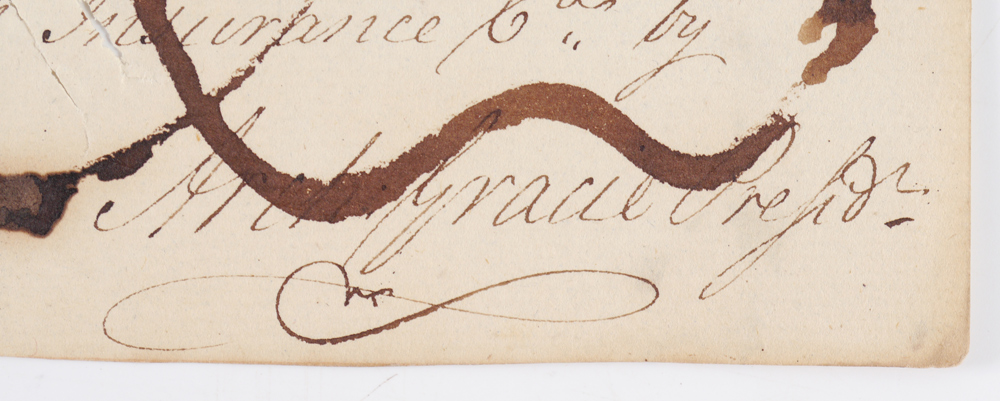 Insurance Co. by
Archd Gracie Presidt